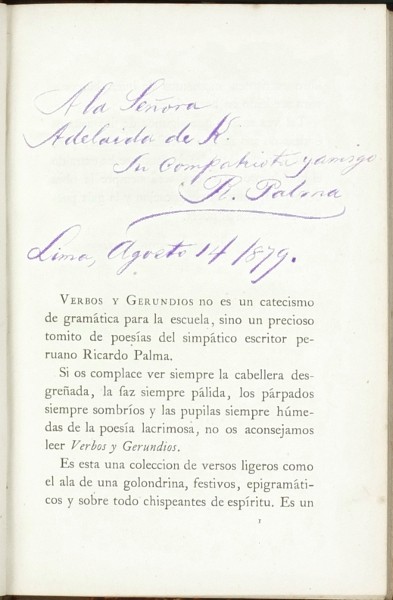 A la Señora
Adelaida de K.
Su compatriota y amigo
R. Palma
Lima, Agosto 14 1879.
VERBOS Y GERUNDIOS no es un catecismo
de gramática para la escuela, sino un precioso
tomito de poesías del simpático escritor pe-
ruano Ricardo Palma.
Si os complace ver siempre la cabellera des-
greñada, la faz siempre pálida, los párpados
siempre sombríos y las pupilas siempre húme-
das de la poesía lacrimosa, no os aconsejamos
leer Verbos y Gerundios.
Es esta una coleccion de versos ligeros como
el ala de una golondrina, festivos, epigramáti-
cos y sobre todo chispeantes de espíritu. Es un
1